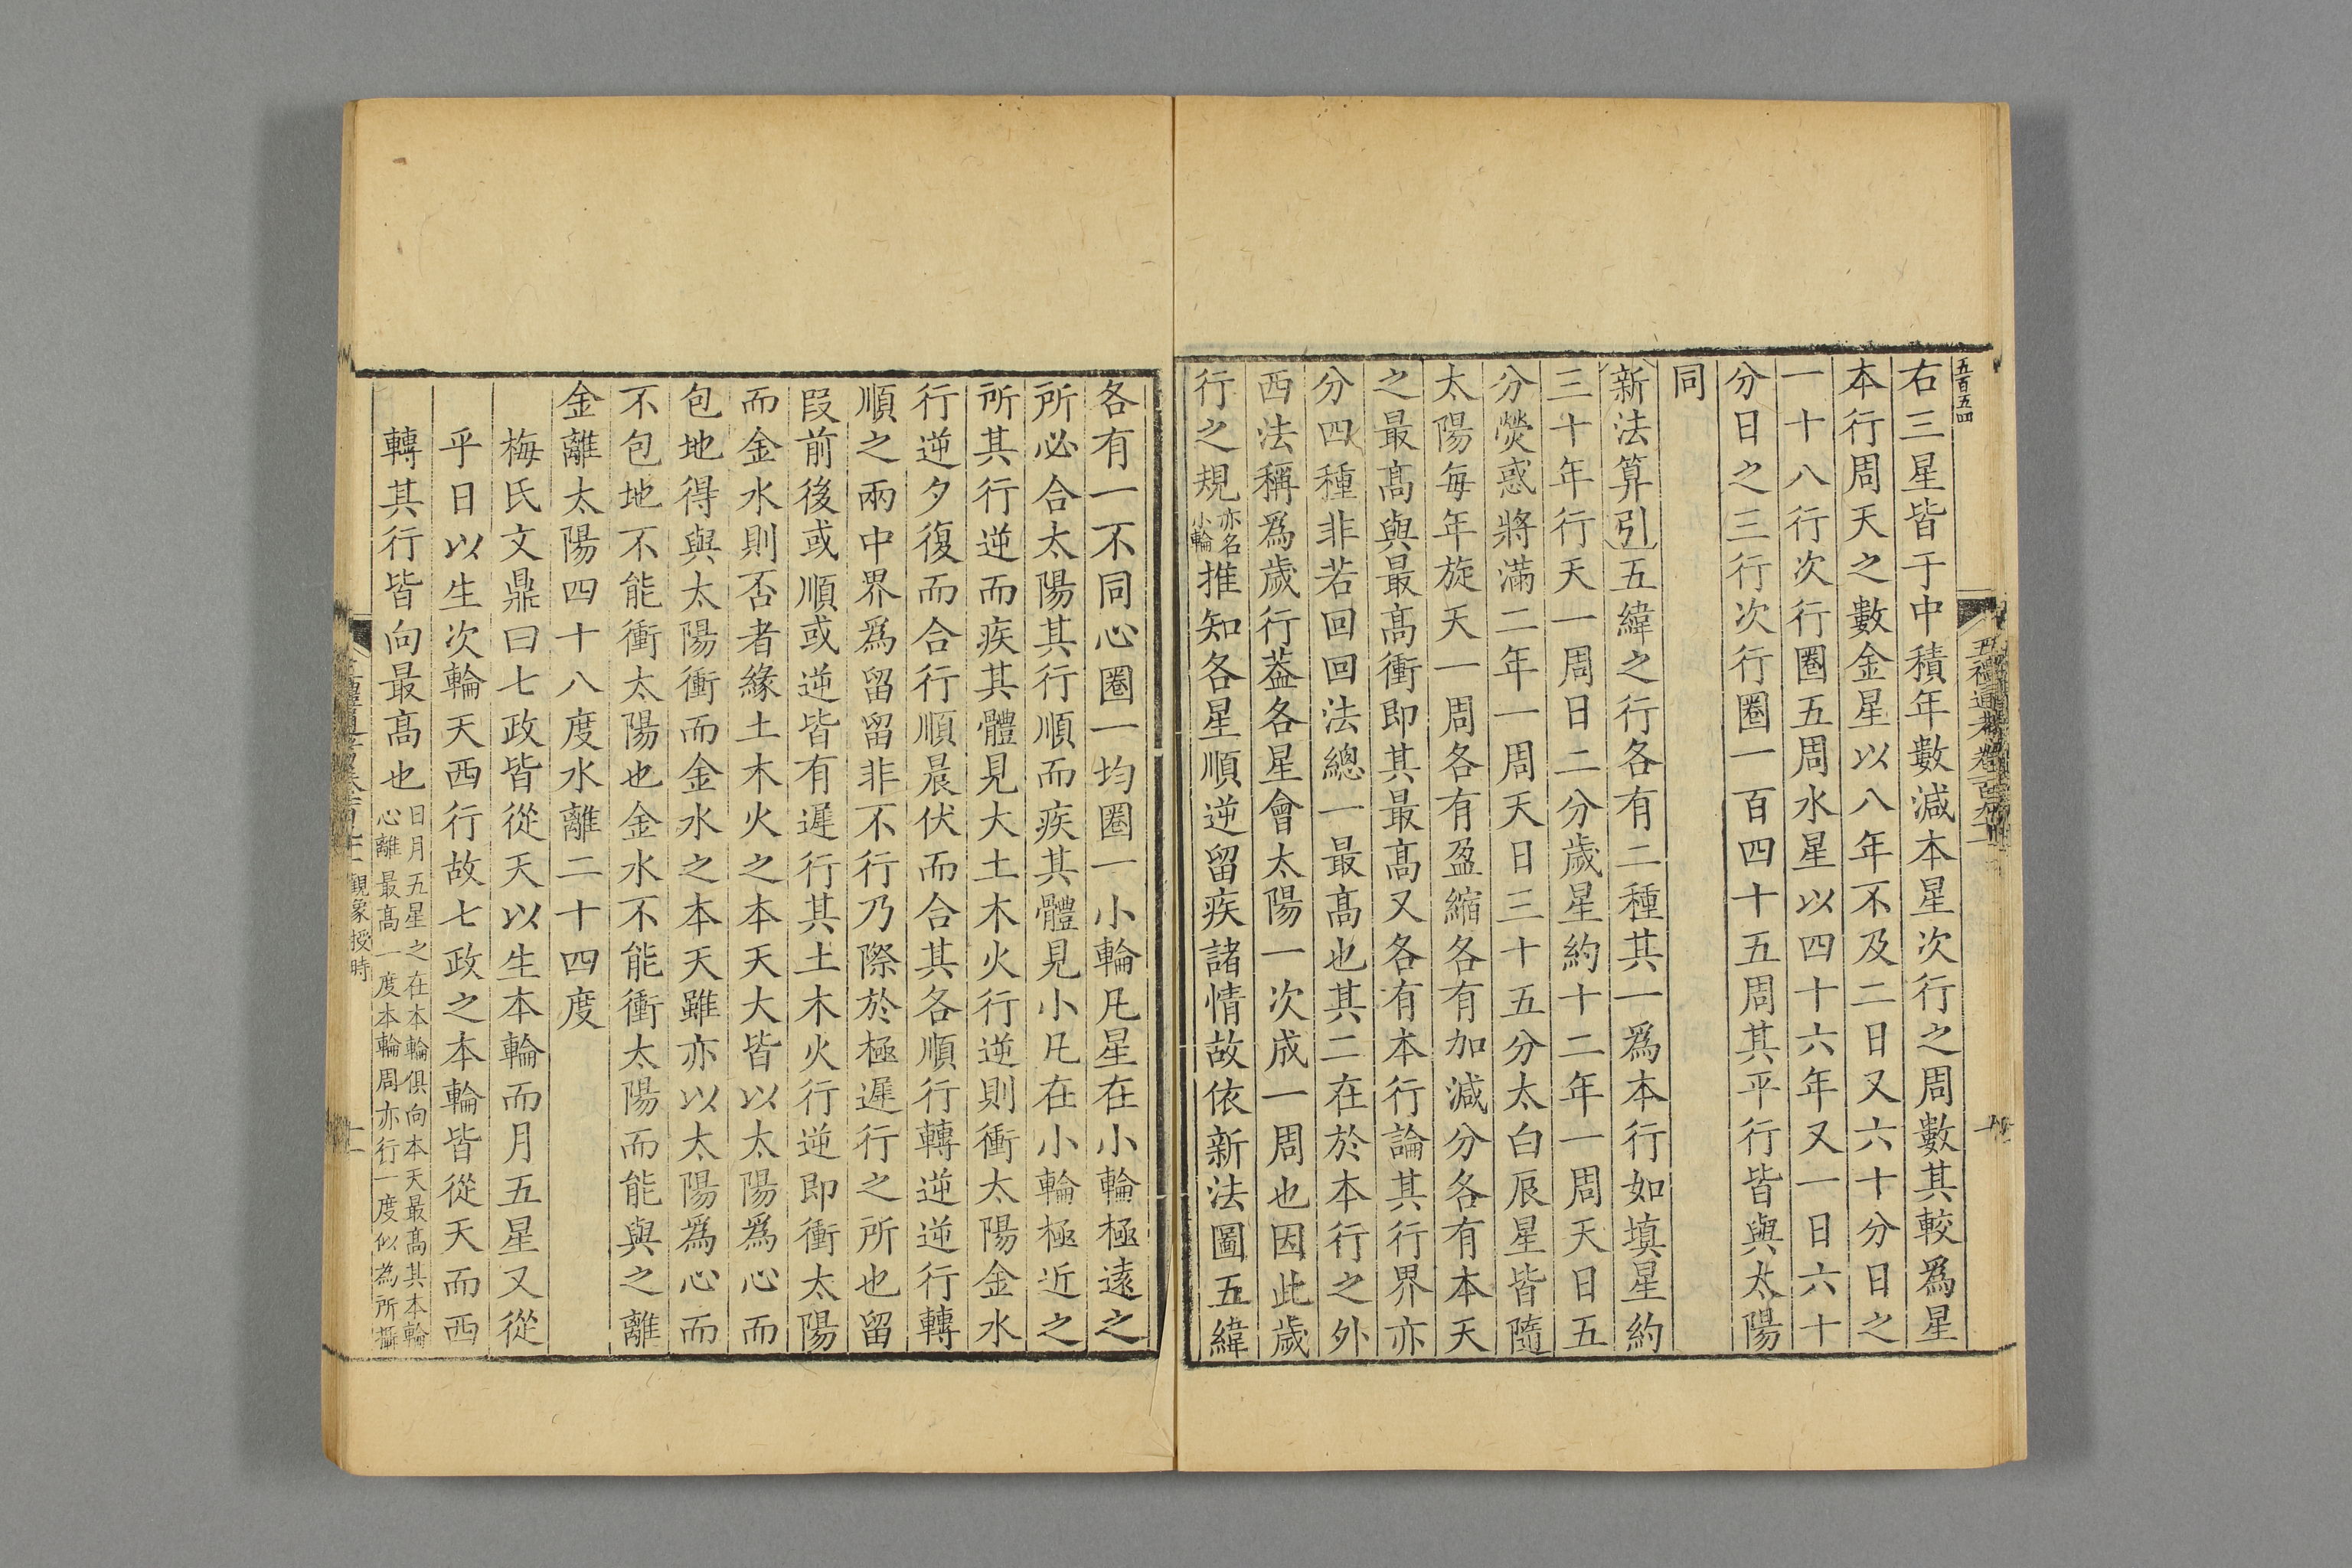 五百五四
右三星皆于中積年數減本星次行之周數其較爲星
本行周天之數金星以八年不及二日又六十分日之
一十八行次行圈五周水星以四十六年又一日六十
分日之三行次行圈一百四十五周其平行皆與太陽
同
新法算引五緯之行各有二種其一爲本行如填星約
三十年行天一周日二分歲星約十二年一周天日五
分熒惑將滿二年一周天日三十五分太白辰星皆隨
太陽每年旋天一周各有盈縮各有加減分各有本天
之最高與最高衝即其最高又各有本行論其行界亦
分四種非若回回法總一最高也其二在於本行之外
西法稱爲歲行葢各星會太陽一次成一周也因此歲
行之規亦名小輪推知各星順逆留疾諸情故依新法圖五緯
各有一不同心圈一均圈一小輪凡星在小輪極遠之
所必合太陽其行順而疾其體見小凡在小輪極近之
所其行逆而疾其體見大土木火行逆則衝太陽金水
行逆夕復而合行順晨伏而合其各順行轉逆逆行轉
順之兩中界爲留留非不行乃際於極遲行之所也留
段前後或順或逆皆有遲行其土木火行逆即衝太陽
而金水則否者緣土木火之本天大皆以太陽爲心而
包地得與太陽衝而金水之本天雖亦以太陽爲心而
不包地不能衝太陽也金水不能衝太陽而能與之離
金離太陽四十八度水離二十四度
梅氏文鼎曰七政皆從天以生本輪而月五星又從
乎日以生次輪天西行故七政之本輪皆從天而西
轉其行皆向最高也日月五星之在本輪俱向本天最高其本輪
心離最高一度本輪周亦行一度似為所攝
觀象授時